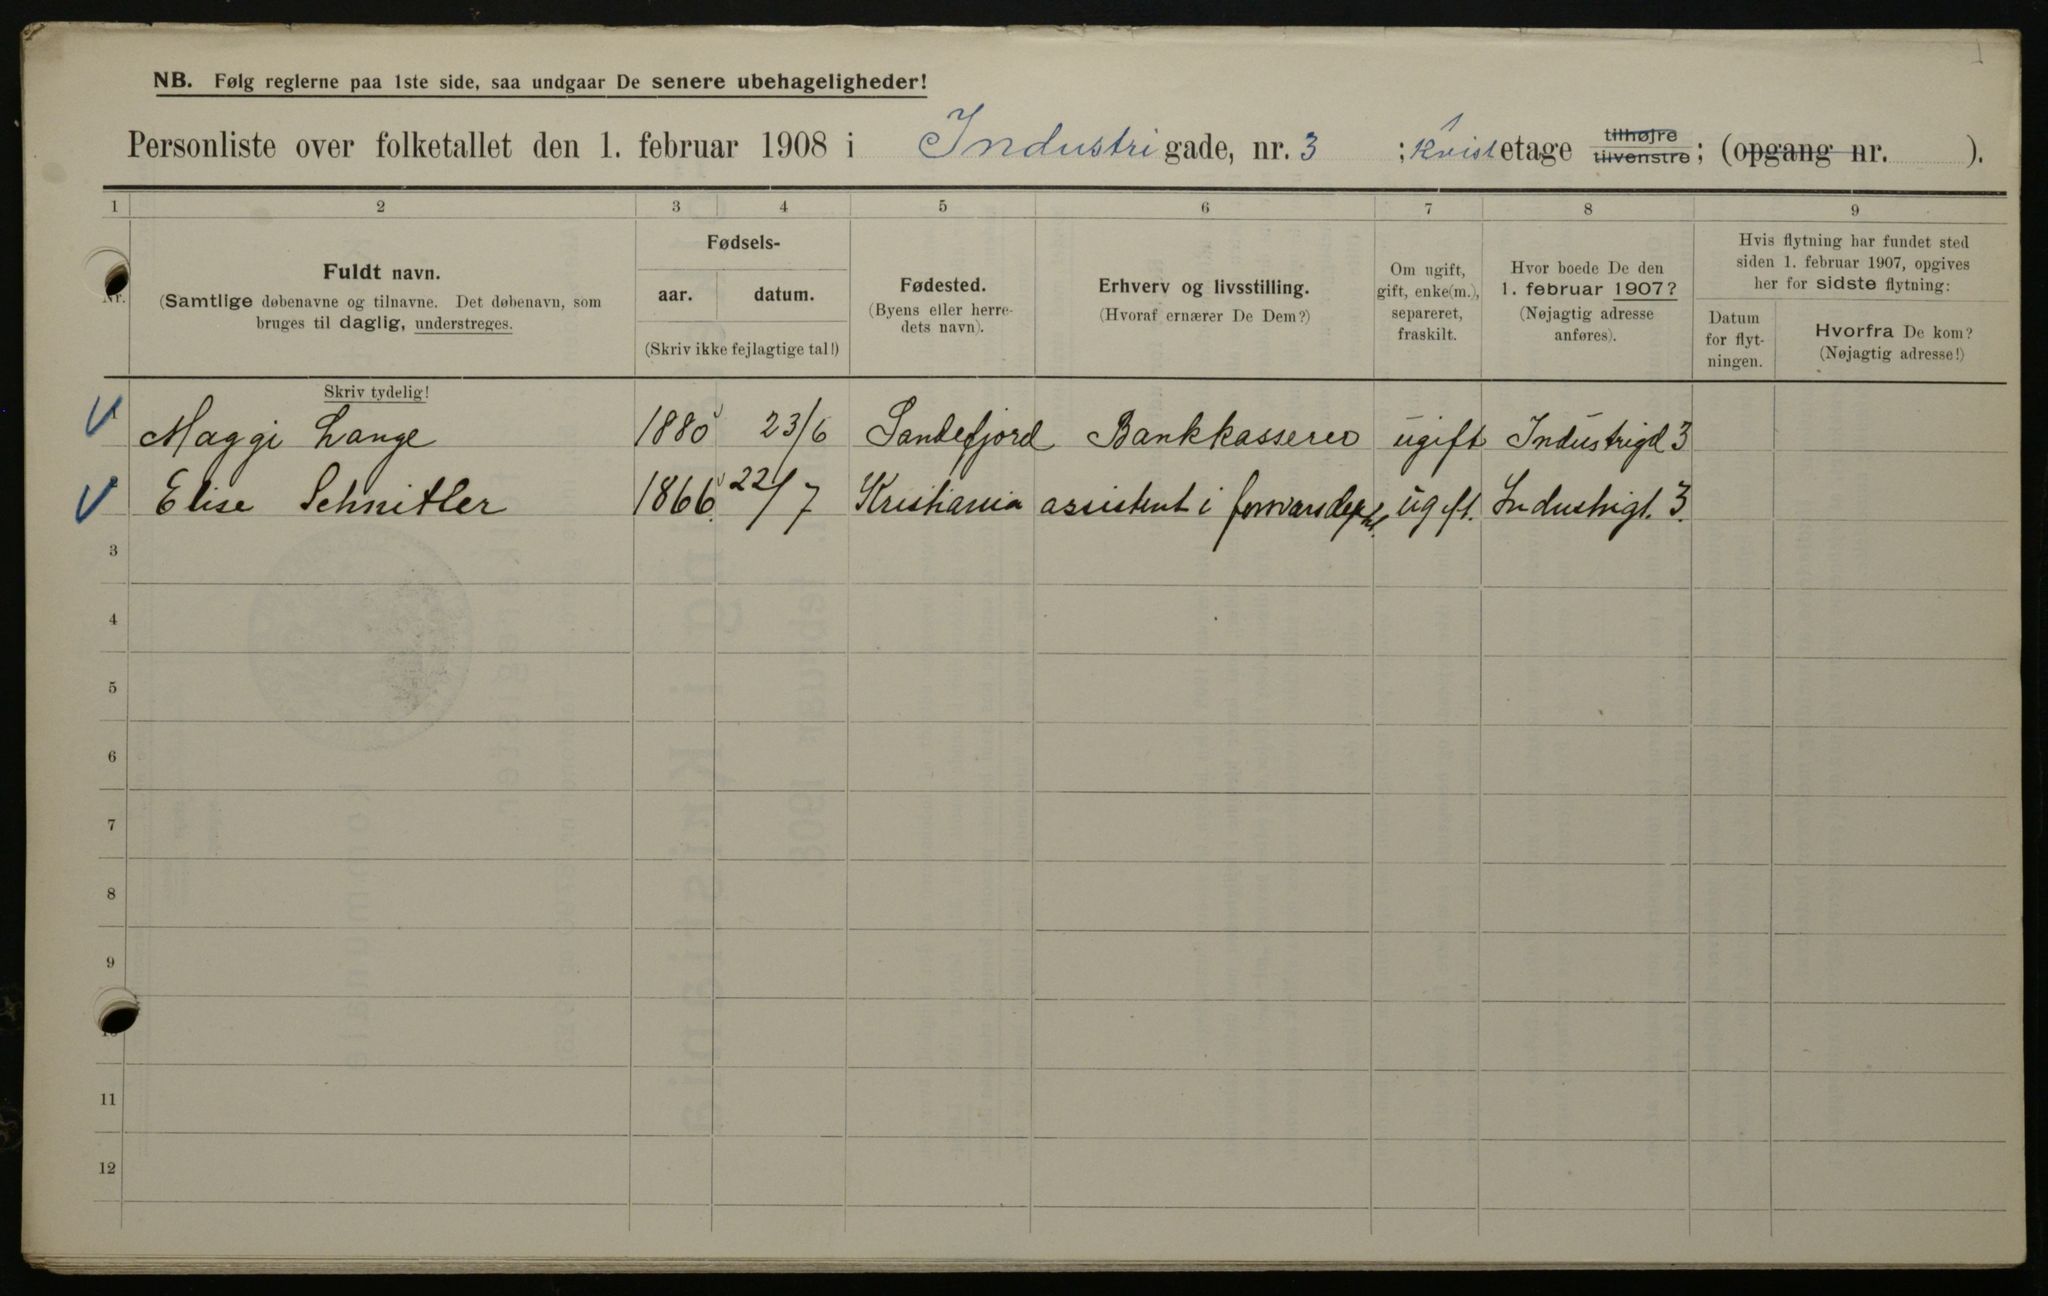 NB. Følg reglerne paa 1ste side, saa undgaar De senere ubehageligheder!
Personliste over folketallet den 1. februar 1908 i Industrigade, nr. 3 ; Kvist etage tilhøjre tilvenstre; (opgang nr. ).
1 2 3 4 5 6 7 8 9
Nr.
Fuldt navn.
(Samtlige døbenavne og tilnavne. Det døbenavn, som
bruges til daglig, understreges.
Fødsels-
aar. datum.
(Skriv ikke fejlagtige tal!)
Fødested.
(Byens eller herre-
dets navn).
Erhverv og livsstilling.
(Hvoraf ernærer De Dem?)
Om ugift,
gift, enke(m.),
separeret,
fraskilt.
Hvor boede De den
1. februar 1907?
(Nøjagtig adresse
anføres).
Hvis flytning har fundet sted
siden 1. februar 1907, opgives
her for sidste flytning:
Datum
for flyt-
ningen.
Hvorfra De kom?
(Nøjagtig adresse!)
Skriv tydelig!
Maggi Lange 1880 23/6 Sandefjord Bankkasserer ugift Industrigd 3
Elise Schnitler 1866 22/7 Kristiania assistent i ugift. Industrigt. 3.
3
4
5
6
7
8
9
10
11
12